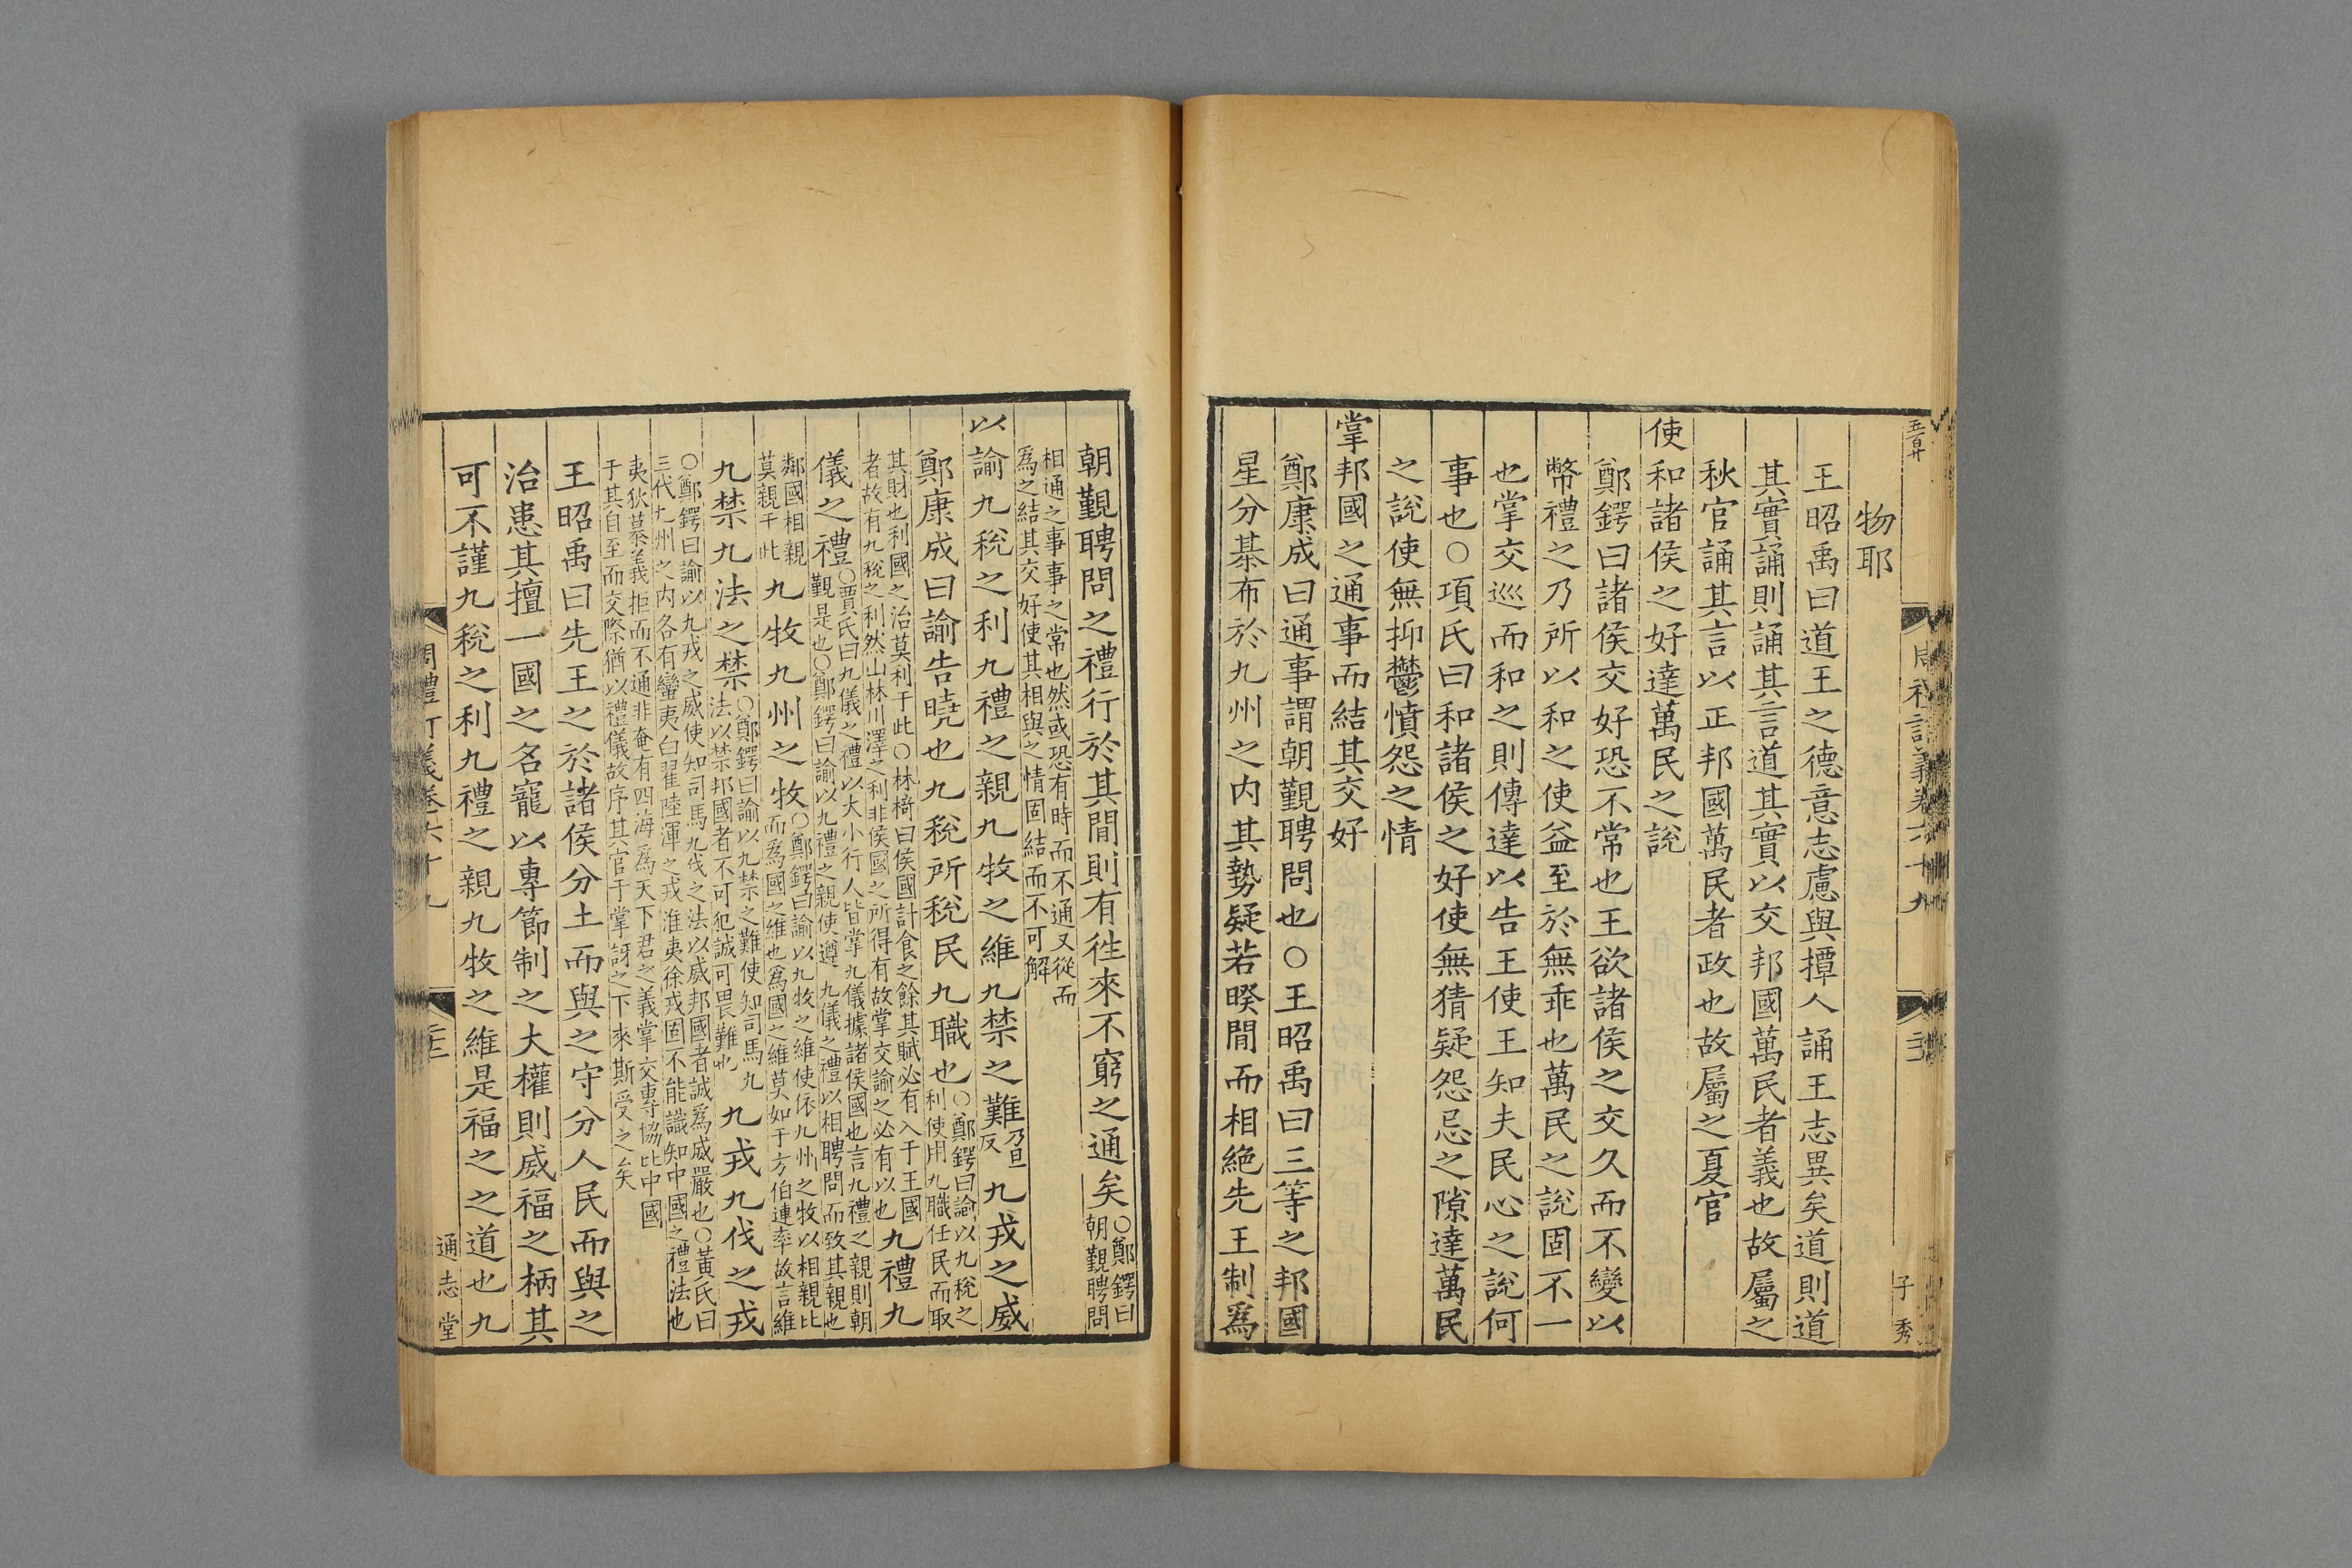 物耶
王昭禹曰道王之德意志慮與撢人誦王志異矣道則道
其實誦則誦其言道其實以交邦國萬民者義也故屬之
秋官誦其言以正邦國萬民者政也故屬之夏官
使和諸侯之好達萬民之說
鄭鍔曰諸侯交好恐不常也王欲諸侯之交久而不變以
幣禮之乃所以和之使益至於無乖也萬民之說固不一
也掌交巡而和之則傳達以告王使王知夫民心之說何
事也○項氏曰和諸侯之好使無猜疑怨忌之隙達萬民
之說使無抑鬱憤怨之情
掌邦國之通事而結其交好
鄭康成曰通事謂朝覲聘問也○王昭禹曰三等之邦國
星分棊布於九州之内其勢疑若暌間而相絶先王制爲
子秀
朝覲聘問之禮行於其間則有徃來不窮之通矣○鄭鍔曰朝覲聘問
相通之事事之常也然或恐有時而不通又從而
爲之結其交好使其相與之情固結而不可解
以諭九稅之利九禮之親九牧之維九禁之難乃旦反九戎之威
鄭康成曰諭告曉也九稅所稅民九職也○鄭鍔曰諭以九稅之利使用九職任民而取
其財也利國之治莫利于此○林椅曰侯國計食之餘其賦必有入于王國
者故有九稅之利然山林川澤之利非侯國之所得有故掌交諭之必有以也
九禮九
儀之禮○賈氏曰九儀之禮以大小行人皆掌九儀據諸侯國也言九禮之親則朝
覲是也○鄭鍔曰諭以九禮之親使遵九儀之禮以相聘問而致其親也
鄰國相親
莫親于此九牧九州之牧○鄭鍔曰諭以九牧之維使依九州之牧以相親比
而爲國之維也爲國之維莫如于方伯連率故言維
九禁九法之禁○鄭鍔曰諭以九禁之難使知司馬九
法以禁邦國者不可犯誠可畏難也九戎九伐之戎
○鄭鍔曰諭以九戎之威使知司馬九伐之法以威邦國者誠爲威嚴也○黃氏曰
三代九州之内各有蠻夷白翟陸渾之戎淮夷徐戎固不能識知中國之禮法也
夷狄慕義拒而不通非奄有四海爲天下君之義掌交專協比中國
于其自至而交際猶以禮儀故序其官于掌訝之下來斯受之矣
王昭禹曰先王之於諸侯分土而與之守分人民而與之
治患其擅一國之名寵以專節制之大權則威福之柄其
可不謹九稅之利九禮之親九牧之維是福之之道也九
通志堂